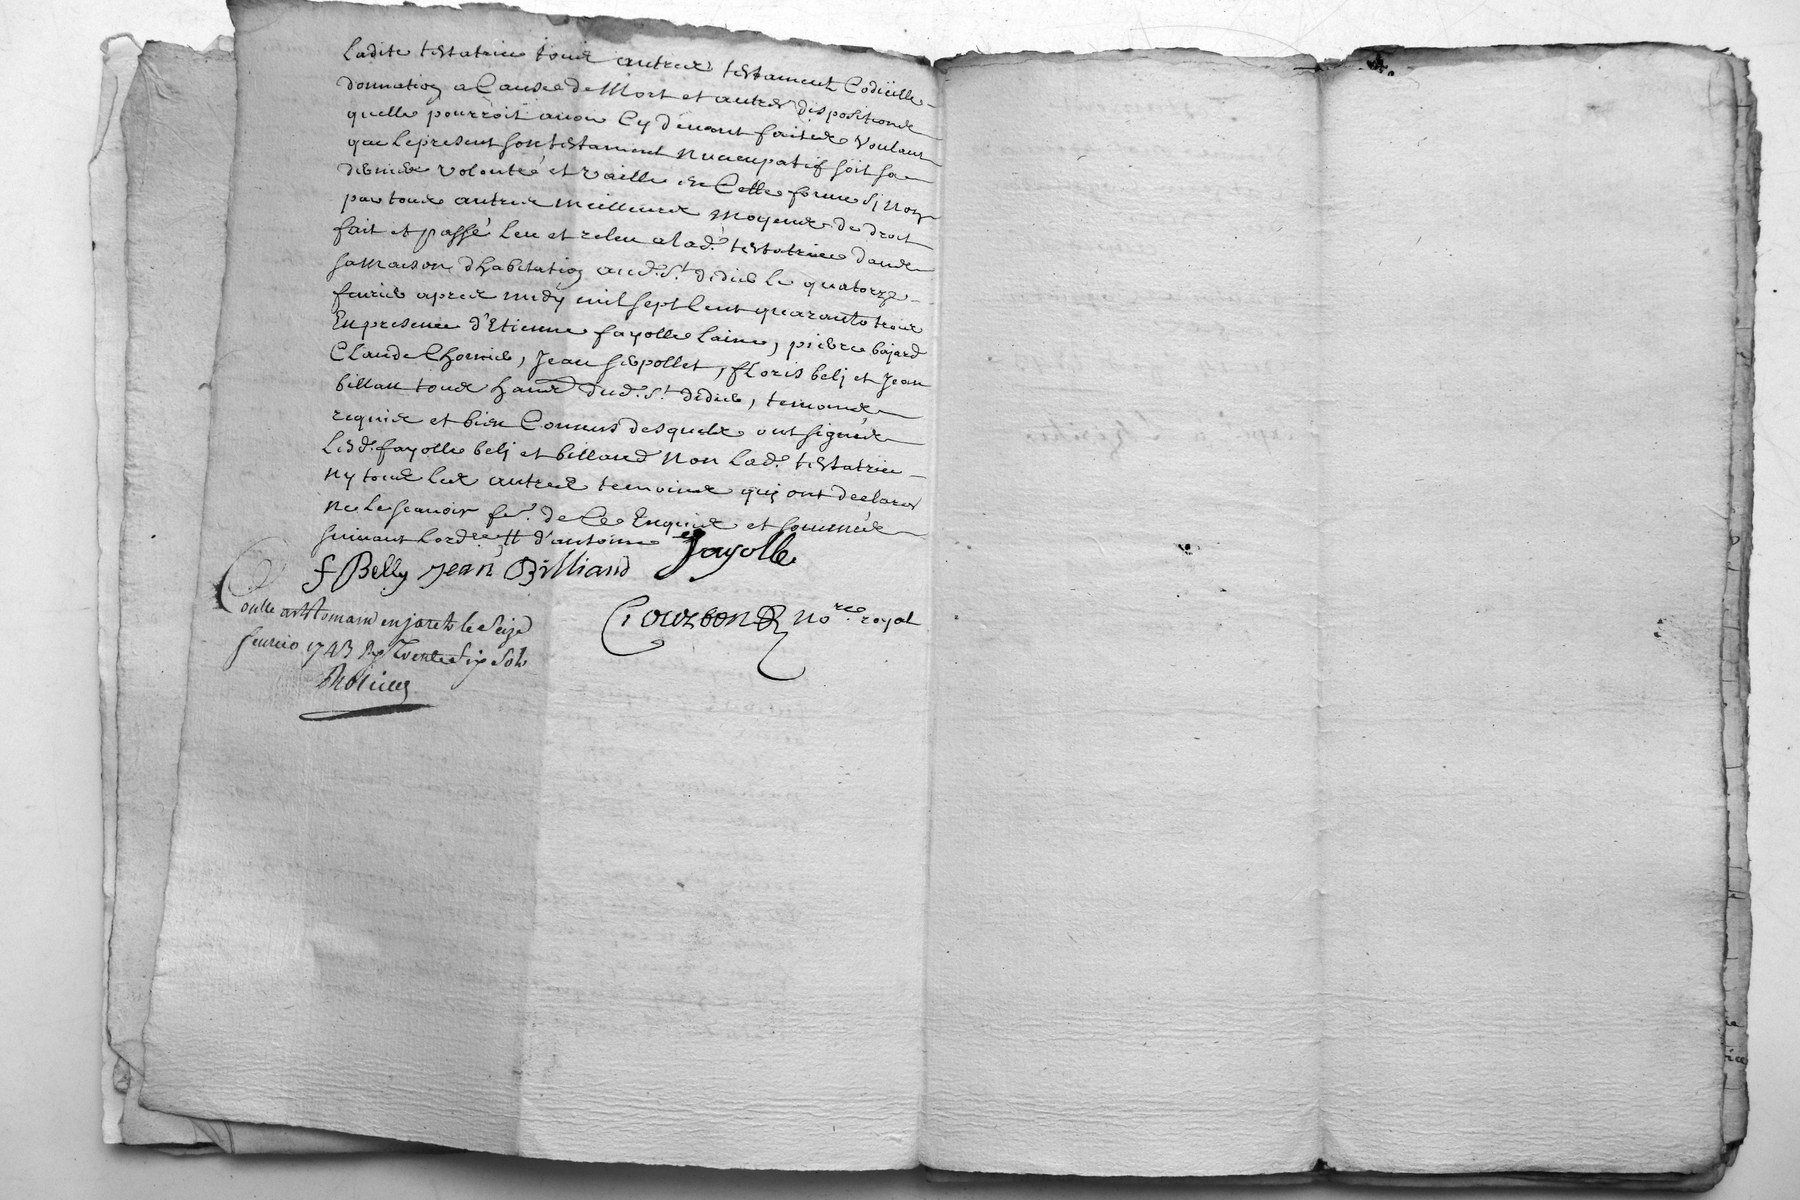 Ladite testatrice tous autres testament Codicille
donnation a Cause de Mort et autres dispositions
quelle pourroit avoir Cy devant faites Voulant
que le present son testament Nuncupatif soit sa
derniere volonté et vaille en Cette forme si non
par tous autres meilleures moyens de droit
fait et passé Leu et releu a lad. testatrice dans
sa maison d'habitation aud. St didier le quatorze
fevrier apres midy mil sept Cent quarante trois
En presence d'Etienne fayolle laine, pierre bajard
Claude Chorrier, Jean sepollet, floris belj et Jean
billau tous dud. St didier, temoins
requis et bien Connus desquels ont signés
Lesd. fayolle belj et billaud Non Lad. testatrice
ny tous les autres temoins quj ont declares
ne le scavoir fe. de Ce Enquis et sommés
suivant Lord.ce d'antoine fayolle
f Belly jean Billiand
Courbon no.re royal
Con.lle a St Romain en jaretz le Seize
fevrier 1743 Rx Trente Six sols